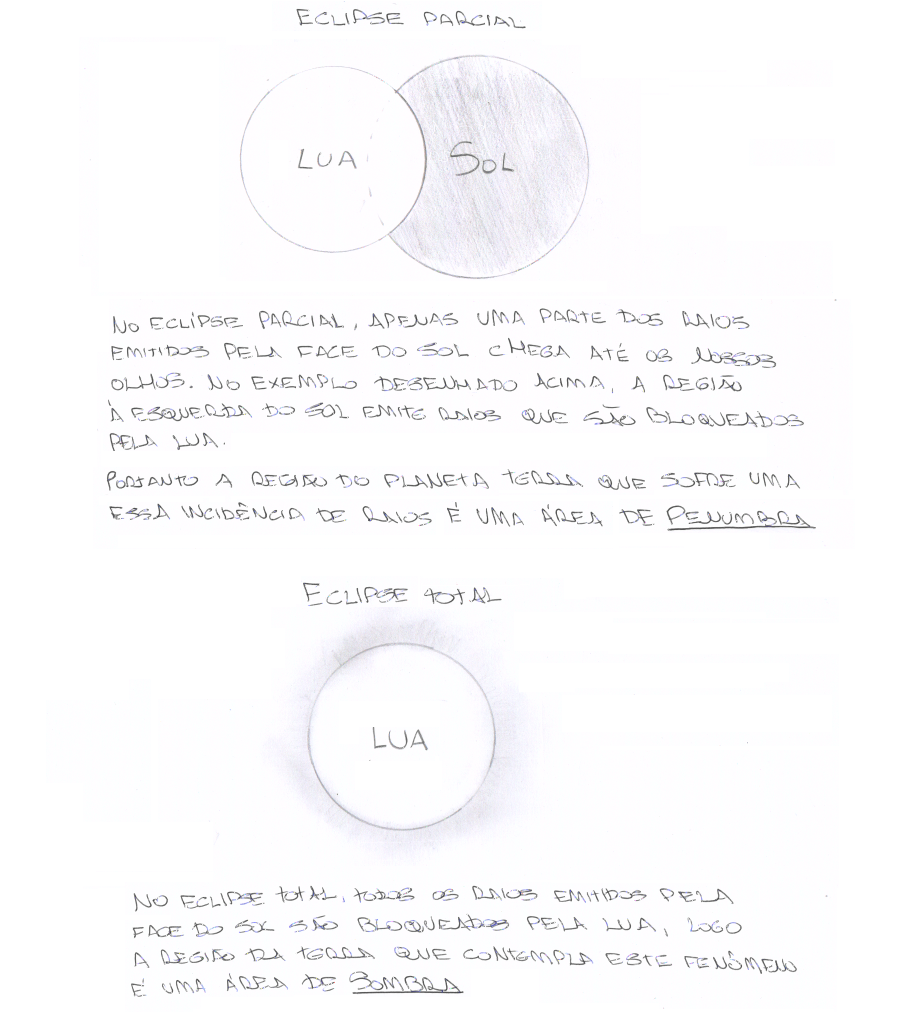 ECLIPSE PARCIAL
LUA
SOL
NO ECLÍPSE PARCIAL, APENAS UMA PARTE DOS RAIOS
EMITIDOS PELA FACE DO SOL CHEGA ATÉ OS NOSSOS
OLHOS. NO EXEMPLO DESENHADO ACIMA, A REGIÃO
À ESQUERDA DO SOL EMITE RAIOS QUE SÃO BLOQUEADOS
PELA LUA.
PORTANTO A REGIÃO DO PLANETA TERRA QUE SOFRE UMA
ESSA INCIDÊNCIA DE RAIOS É UMA ÁREA DE PENUMBRA
ECLIPSE TOTAL
LUA
NO ECLIPSE TOTAL, TODOS OS RAIOS EMITIDOS PELA
FACE DO SOL SÃO BLOQUEADOS PELA LUA, LOGO
A REGIÃO DA TERRA QUE CONTEMPLA ESTE FENÔMENO
É UMA ÁREA DE SOMBRA